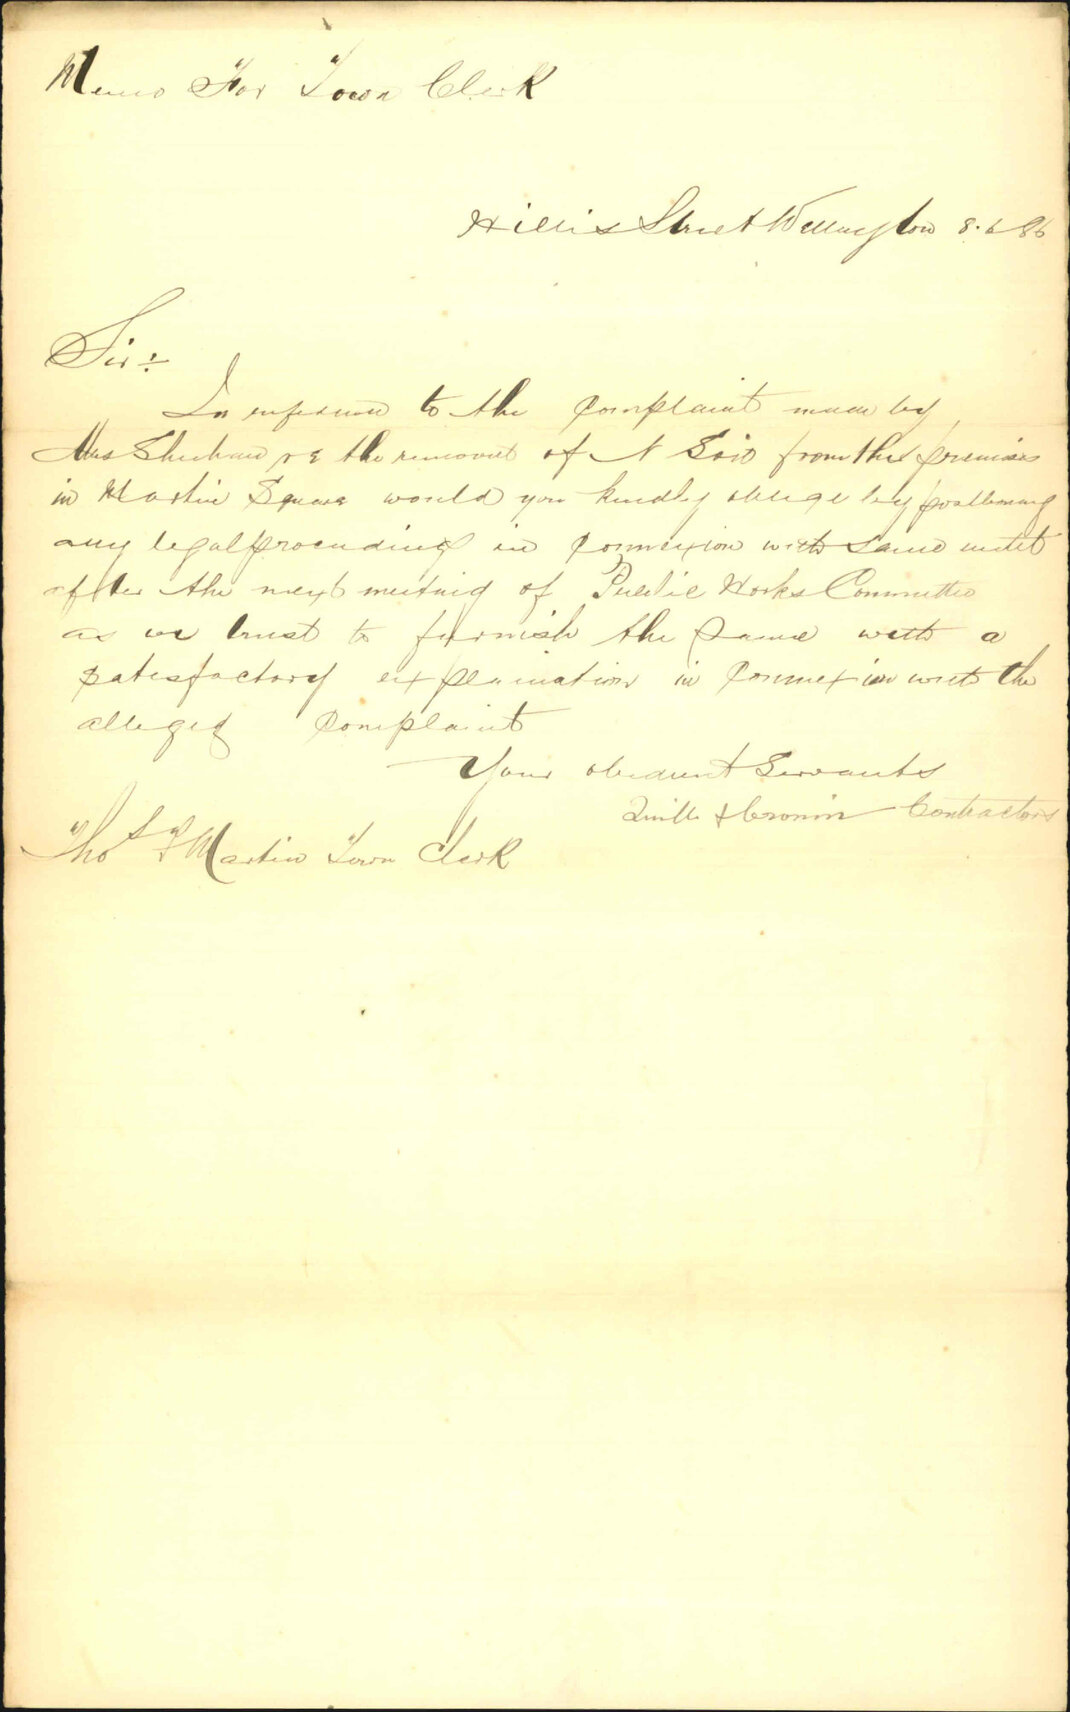 Memo For Town Clerk
Willis Street Wellington 8.6.86
Sir :
In reference to the Complaint made by
Mrs Sheehan re the removal of N Soil from the premises
in Martin Square would you kindly oblige by postponing
any legal proceeding in Connexion with same until
after the next meeting of Public Works Committee
as we trust to furnish the same with a
satisfactory explaination in Connexion with the
alleged Complaint
Your obedient Servants
& Cronin Contractors
Thos Martin Town Clerk